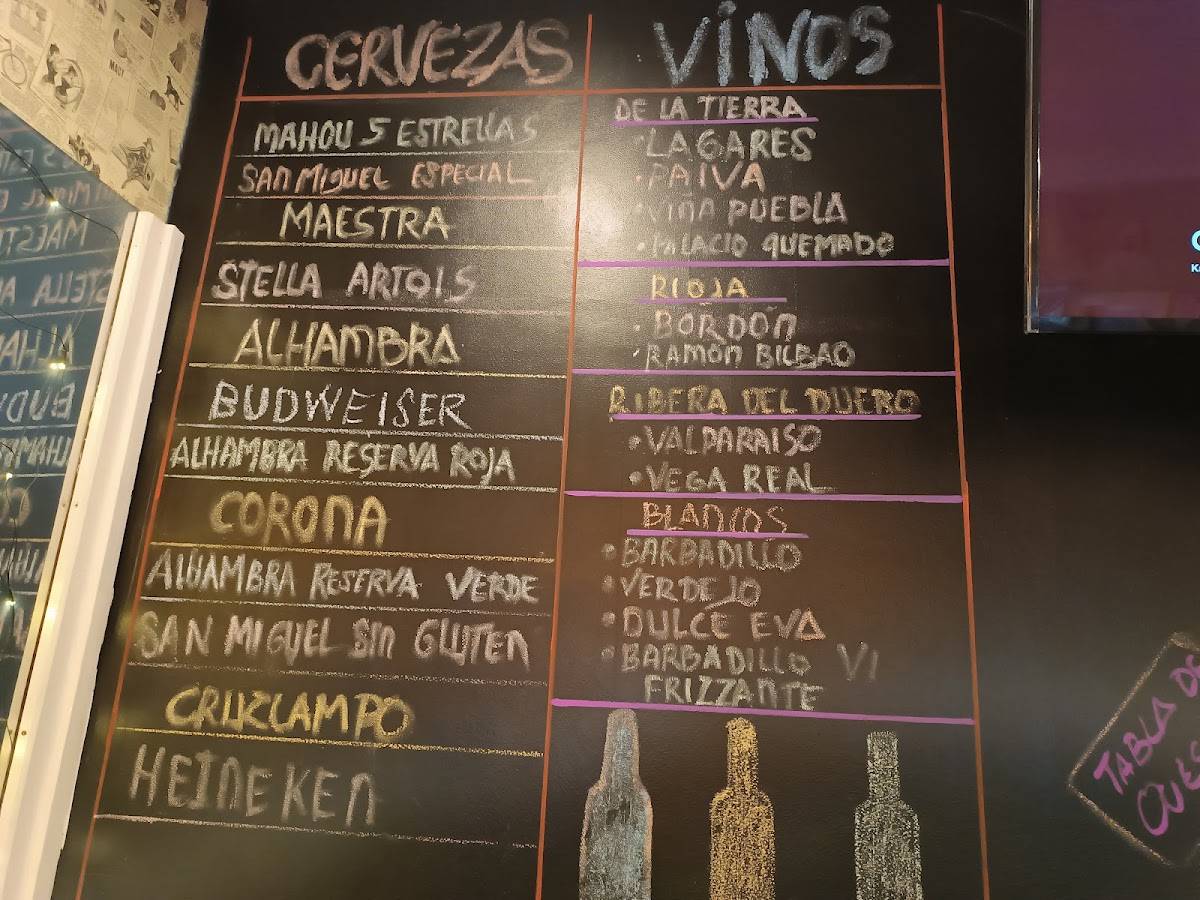 CERVEZAS
MAHOU 5 ESTRELLAS
SAN MIGUEL ESPECIAL
MAESTRA
STELLA ARTOIS
ALHAMBRA
BUDWEISER
ALHAMBRA RESERVA ROJA
CORONA
ALHAMBRA RESERVA VERDE
SAN MIGUEL SIN GLUTEN
CRUZCAMPO
HEINEKEN
VINOS
DE LA TIERRA
• LAGARES
• PAIVA
• VIÑA PUEBLA
• PALACIO QUEMADO
RIOJA
• BORDÓN
• RAMÓN BILBAO
RIBERA DEL DUERO
• VALPARAISO
• VEGA REAL
BLANCOS
• BARBADILLO
• VERDEJO
• DULCE EVA
• BARBADILLO VI
FRIZZANTE
TABLA DE